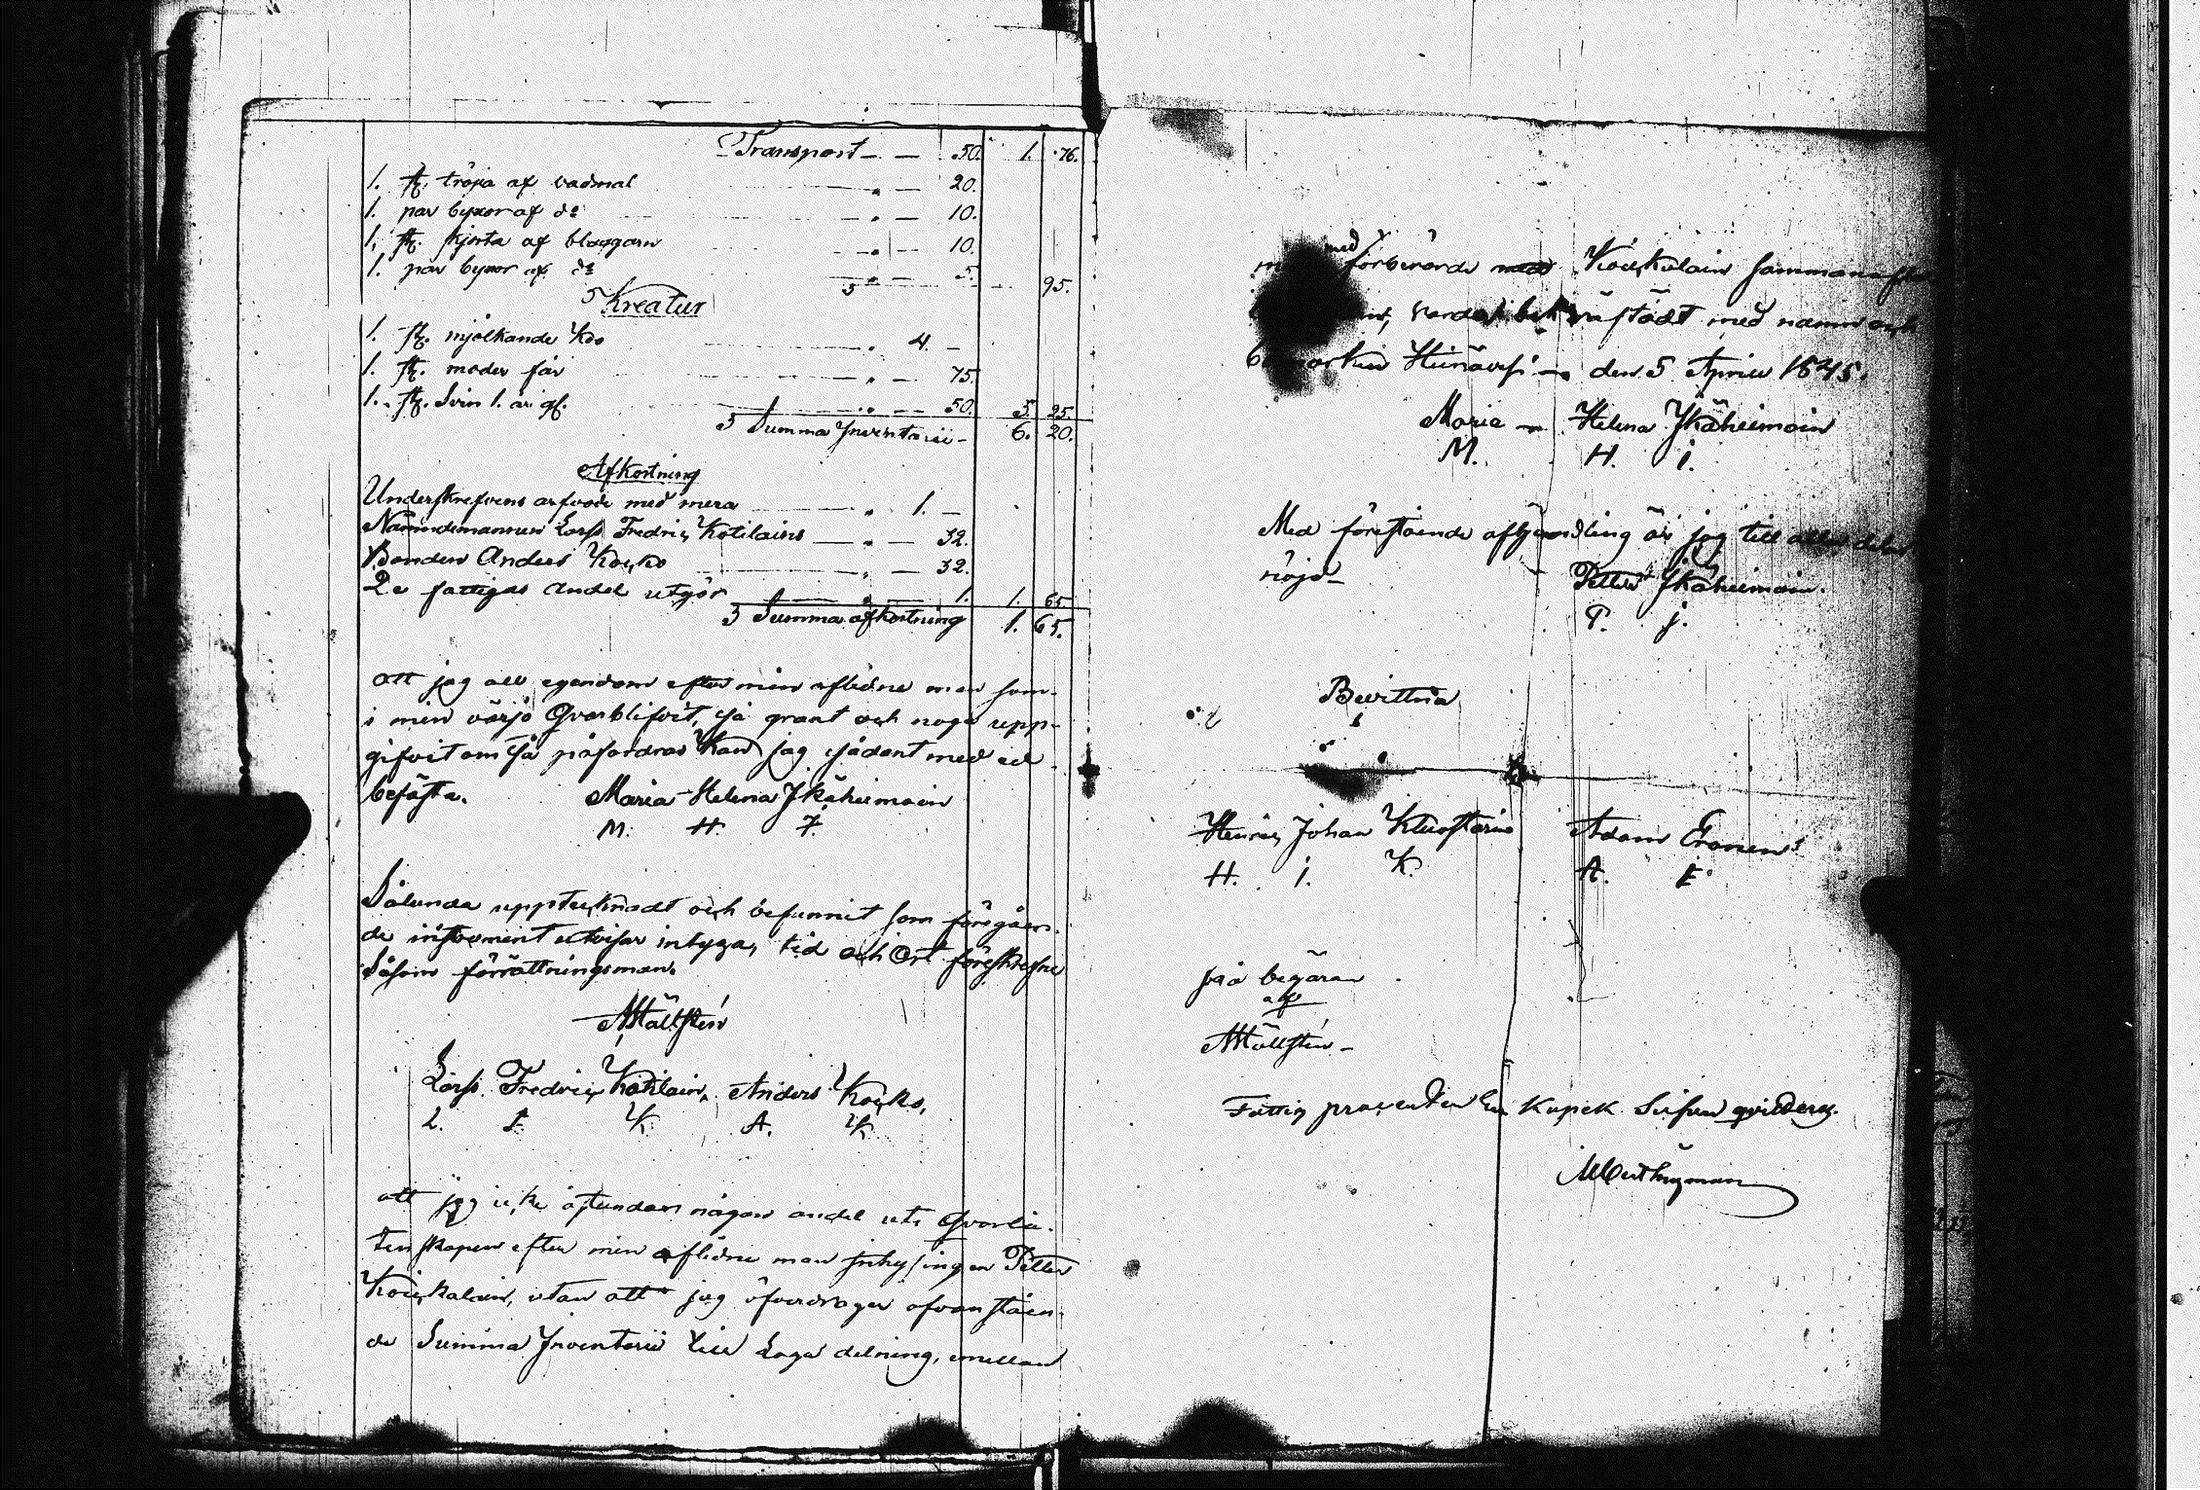 Transport — — 50. 1. 76.
1. st. tröja af vadmal — " — 20.
1. par byxor af do — " — 10.
1. st. skjorta af blaggarn — " — 10.
1. par byxor af do — " — 5. 95.
Kreatur
1. st. mjölkande Ko — " 4. —
1. st. moder får — " — 75.
1. st. Svin 1. år gl. — " — 50. 5. 25.
Summa Inventarii — 6. 20.
Afkortning
Underskrefvens arfvode med mera — " 1. —
Nämndemannen Larss Fredric Kotilains — " — 32.
Bonden Anders Kocko — " — 32.
De fattigas andel utgör — " — 1. 1. 65.
Summa afkortning 1. 65.
att jag all egendom efter min aflidne man som
i min värjo qvarblifvit, så grant och noga upp-
gifvit om så påfordras kan jag sådant med ed
befästa. Maria Helena Ikäheimoin
M. H. I.
Sålunda uppteknadt och befunnit som föregåen-
de instrument utvisar intyga, tid och Ort föreskrefne
Såsom förrättningsman.
Mällsten
Larss Fredric Kotilain, Anders Kocko,
L. F. K. A. K.
att jag icke åstundar någon andel uti qvarlå-
tenskapen efter min aflidne man inhysingen Petter
Koickalain, utan att jag öfverdrager ofvanståen-
de Summa Inventarii till Laga delning, emellan
med
förberörde Koickalain sammana
varder bekräftadt med namn och
Heinävesi — den 5 April 1845.
Maria — Helena Ikäheimoin
M. H. I.
Med förestående afhandling är jag till alla delar
nöjd — Petter Ikäheimoin.
P. J.
Bevittna
Henric Johan Kluostarin Adam Eronen
H. J. K. A. E.
på begäran
af
Mällsten —
Fattig procenten En Kopek Silfver qvitteras.